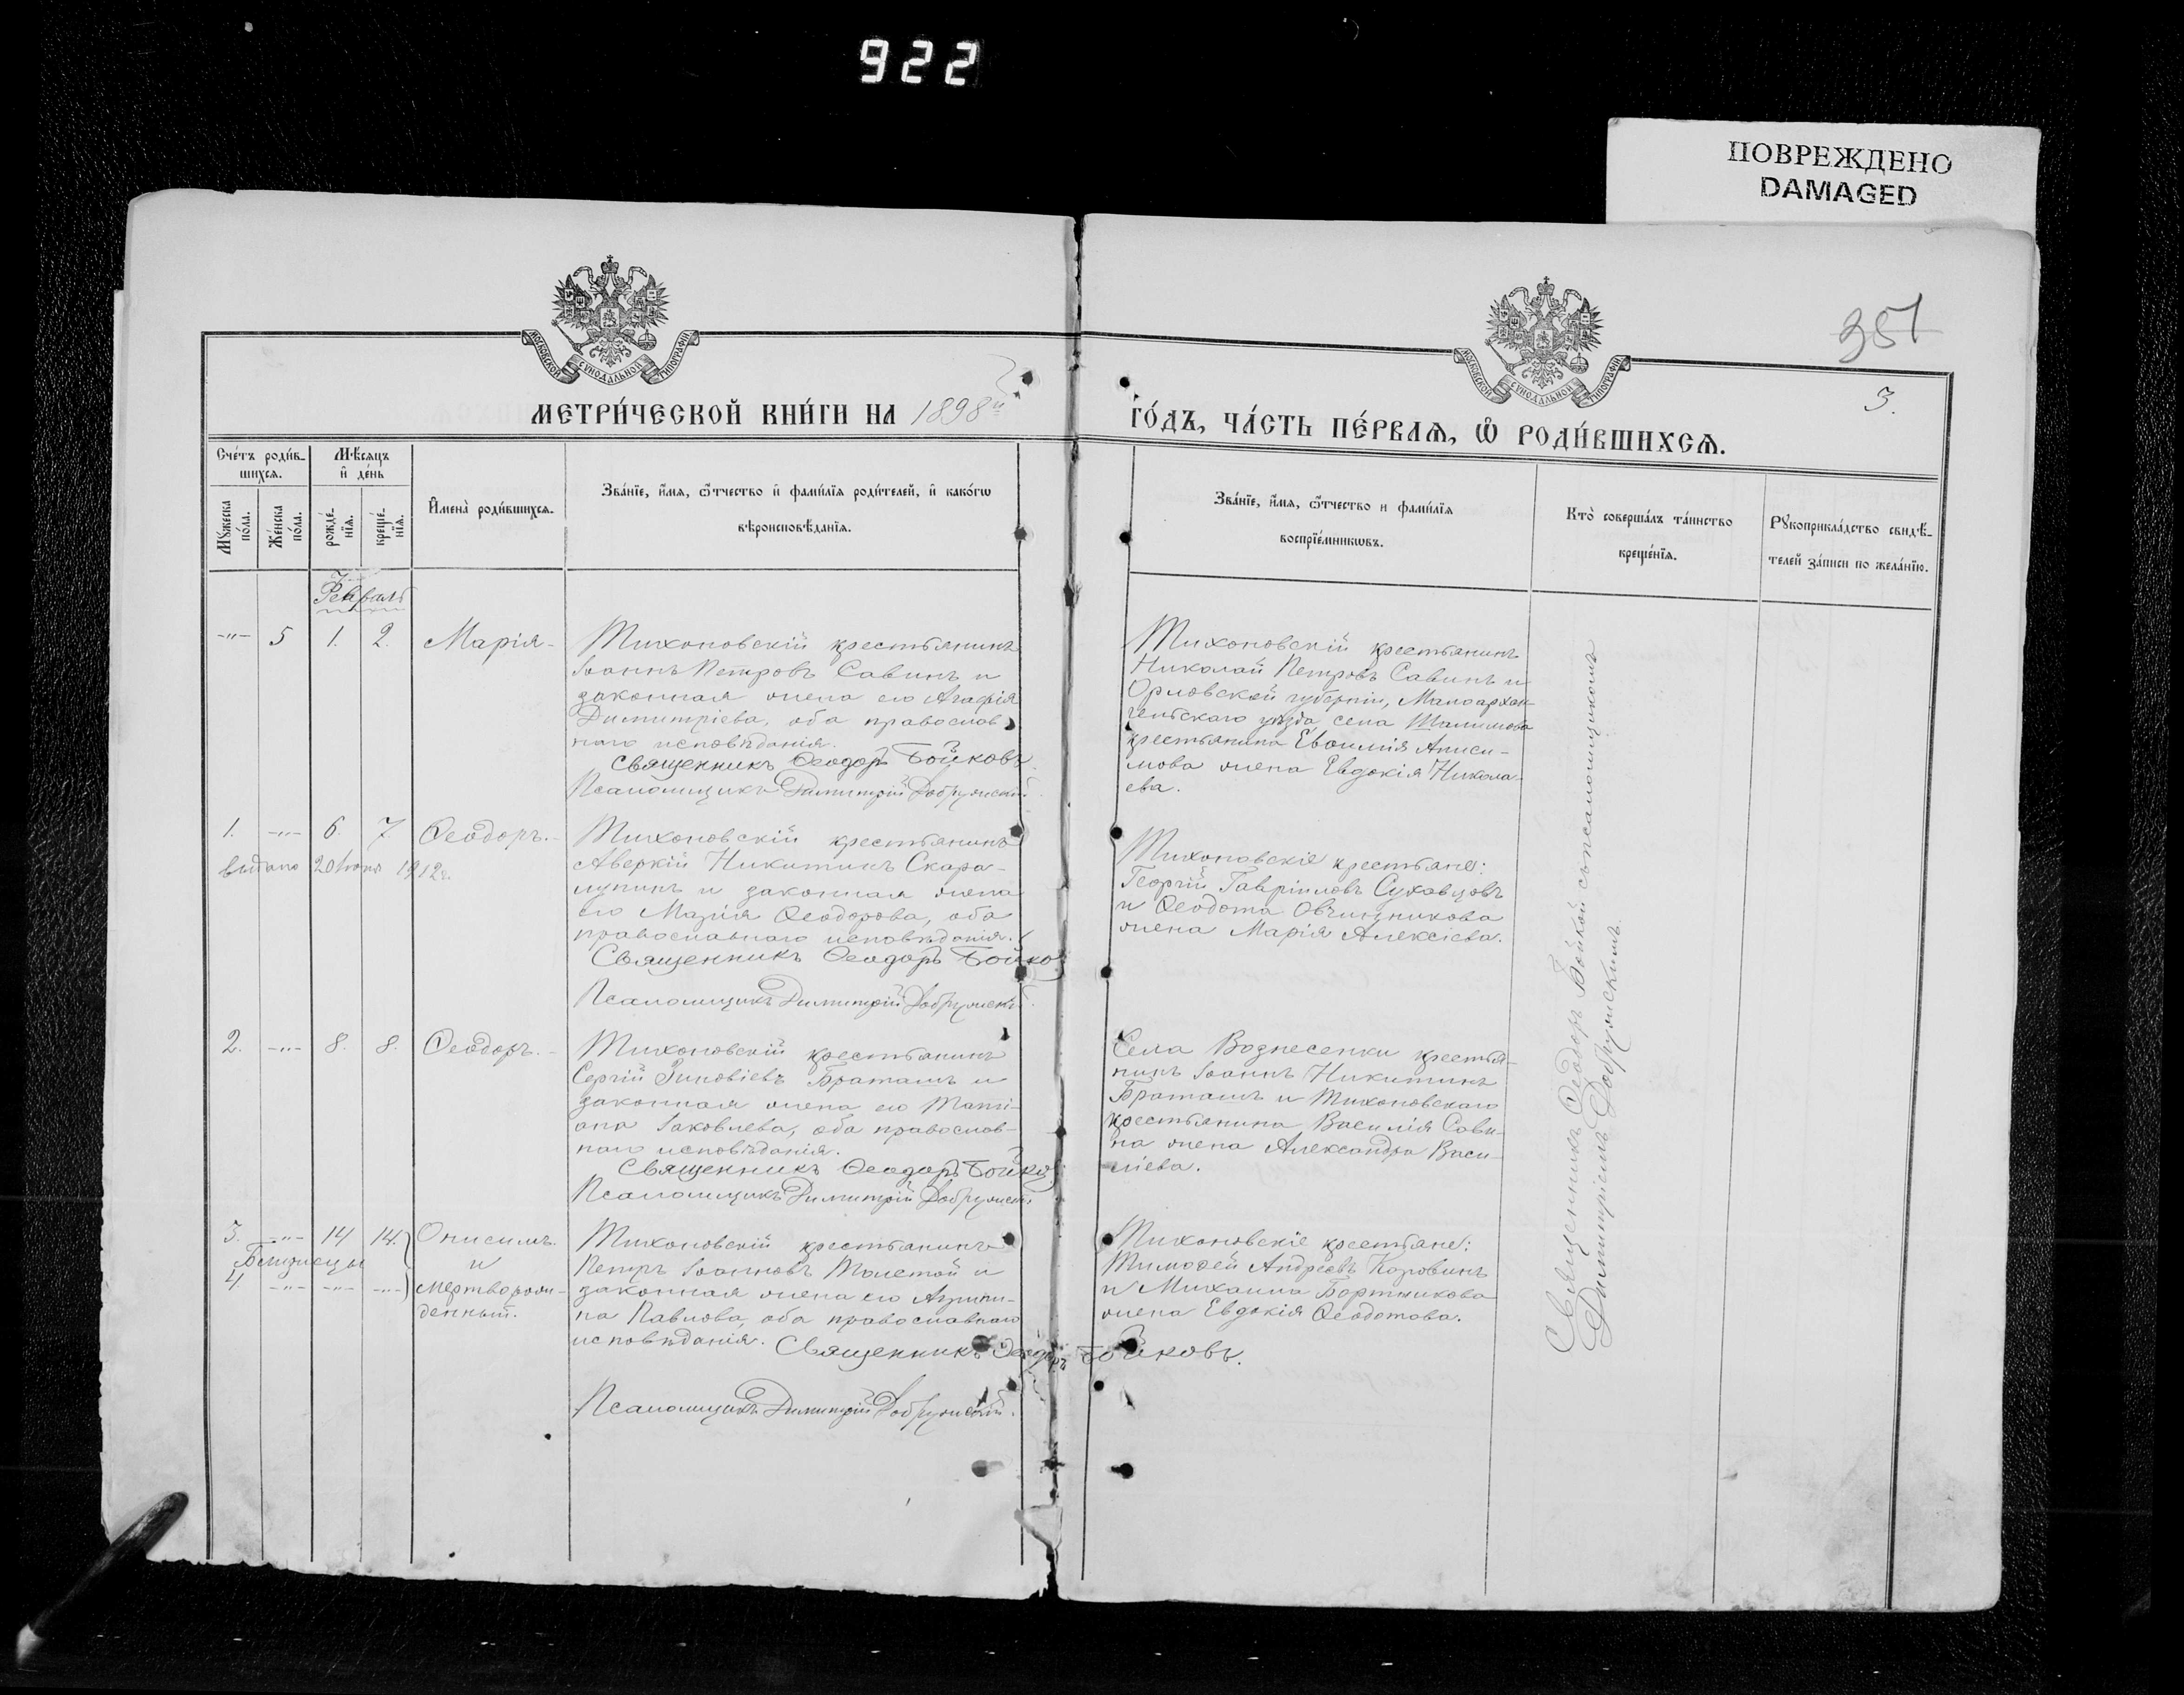 922
ПОВРЕЖДЕНО
DAMAGED
МОСКОВСКОЙ СУНОДАЛЬНОЙ ТИПОГРАФІИ
МОСКОВСКОЙ СУНОДАЛЬНОЙ ТИПОГРАФІИ
351
3.
МЕТРИ́ЧЕСКОЙ КНИ́ГИ НА 1898й
ГО́ДЪ, ЧА́СТЬ ПЕ́РВАѦ, Ѡ҆ РОДИ́ВШИХСѦ.
Сче́тъ роди́в-
шихсѧ.
Мꙋжеска по́ла.
Же́нска по́ла.
Мѣ́сѧцъ и҆ де́нь
рожде́-нїѧ.
креще́-нїѧ.
И҆мена̀ роди́вшихсѧ.
Зва́нїе, и҆́мѧ, ѻ҆́тчество и҆ фами́лїѧ роди́телей, и҆ како́гѡ
вѣроисповѣ́данїѧ.
Зва́нїе, и҆́мѧ, ѻ҆́тчество и фами́лїѧ
воспрїе́мникѡвъ.
Кто̀ соверша́лъ та́инство
креще́нїѧ.
Рꙋкоприкла́дство свидѣ́-
телей за́писи по жела́нїю.
Февраль
-"- 5 1. 2. Марія-
Тихоновскій крестьянинъ
Іоаннъ Петровъ Савинъ и
законная жена его Агафія
Димитріева, оба православ
наго исповѣданія.
Священникъ Ѳеодоръ Бойковъ.
Псаломщикъ Димитрій Добружскій.
Тихоновскій крестьянинъ
Николай Петровъ Савинъ и
Орловской губерніи, Малоархан-
гельскаго уѣзда, села
крестьянина Евѳимія Аниси-
мова жена Евдокія Никола-
ева.
1. -"- 6. 7. Ѳеодоръ.-
выдано 20 1912г.
Тихоновскій крестьянинъ
Аверкій Никитинъ Скара-
лупинъ и законная жена
его Марія Ѳеодорова, оба
православнаго исповѣданія.
Священникъ Ѳеодоръ Бойков
Псаломщикъ Димитрій Добружскій.
Тихоновскіе крестьяне:
Георгій Гавріиловъ Сухавцовъ
и Ѳеодота Овчинникова
жена Марія Алексіева.
2. -"- 8. 8. Ѳеодоръ.-
Тихоновскій крестьянинъ
Сергій Зиновіевъ Браташъ и
законная жена его Тати-
ана Іаковлева, оба православ-
наго исповѣданія.
Священникъ Ѳеодоръ Бойков
Псаломщикъ Димитрій Добружскі.
Села Вознесенки крестья-
нинъ Іоаннъ Никитинъ
Браташъ и Тихоновскаго
крестьянина Василія Сави-
на жена Александра Васи-
ліева.
3. -"- 14 14. Онисимъ.
Близнецы и
4 -"- -"- -"- мертворож-
денный.
Тихоновскій крестьянинъ
Петръ Іоанновъ Толстой и
законная жена его Агрипи-
на Павлова, оба православнаго
исповѣданія. Священникъ Ѳеодоръ Бойковъ.
Псаломщикъ Димитрій Добружскій.
Тихоновскіе крестьяне:
Тимоѳей Андреевъ Коровинъ
и Михаила Бортникова
жена Евдокія Ѳеодотова.
Священникъ Ѳеодоръ Бойковъ съ псаломщикомъ
Димитріемъ Добружскимъ.